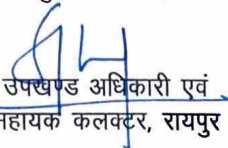 उपखण्ड अधिकारी एवं
सहायक कलक्टर, रायपुर